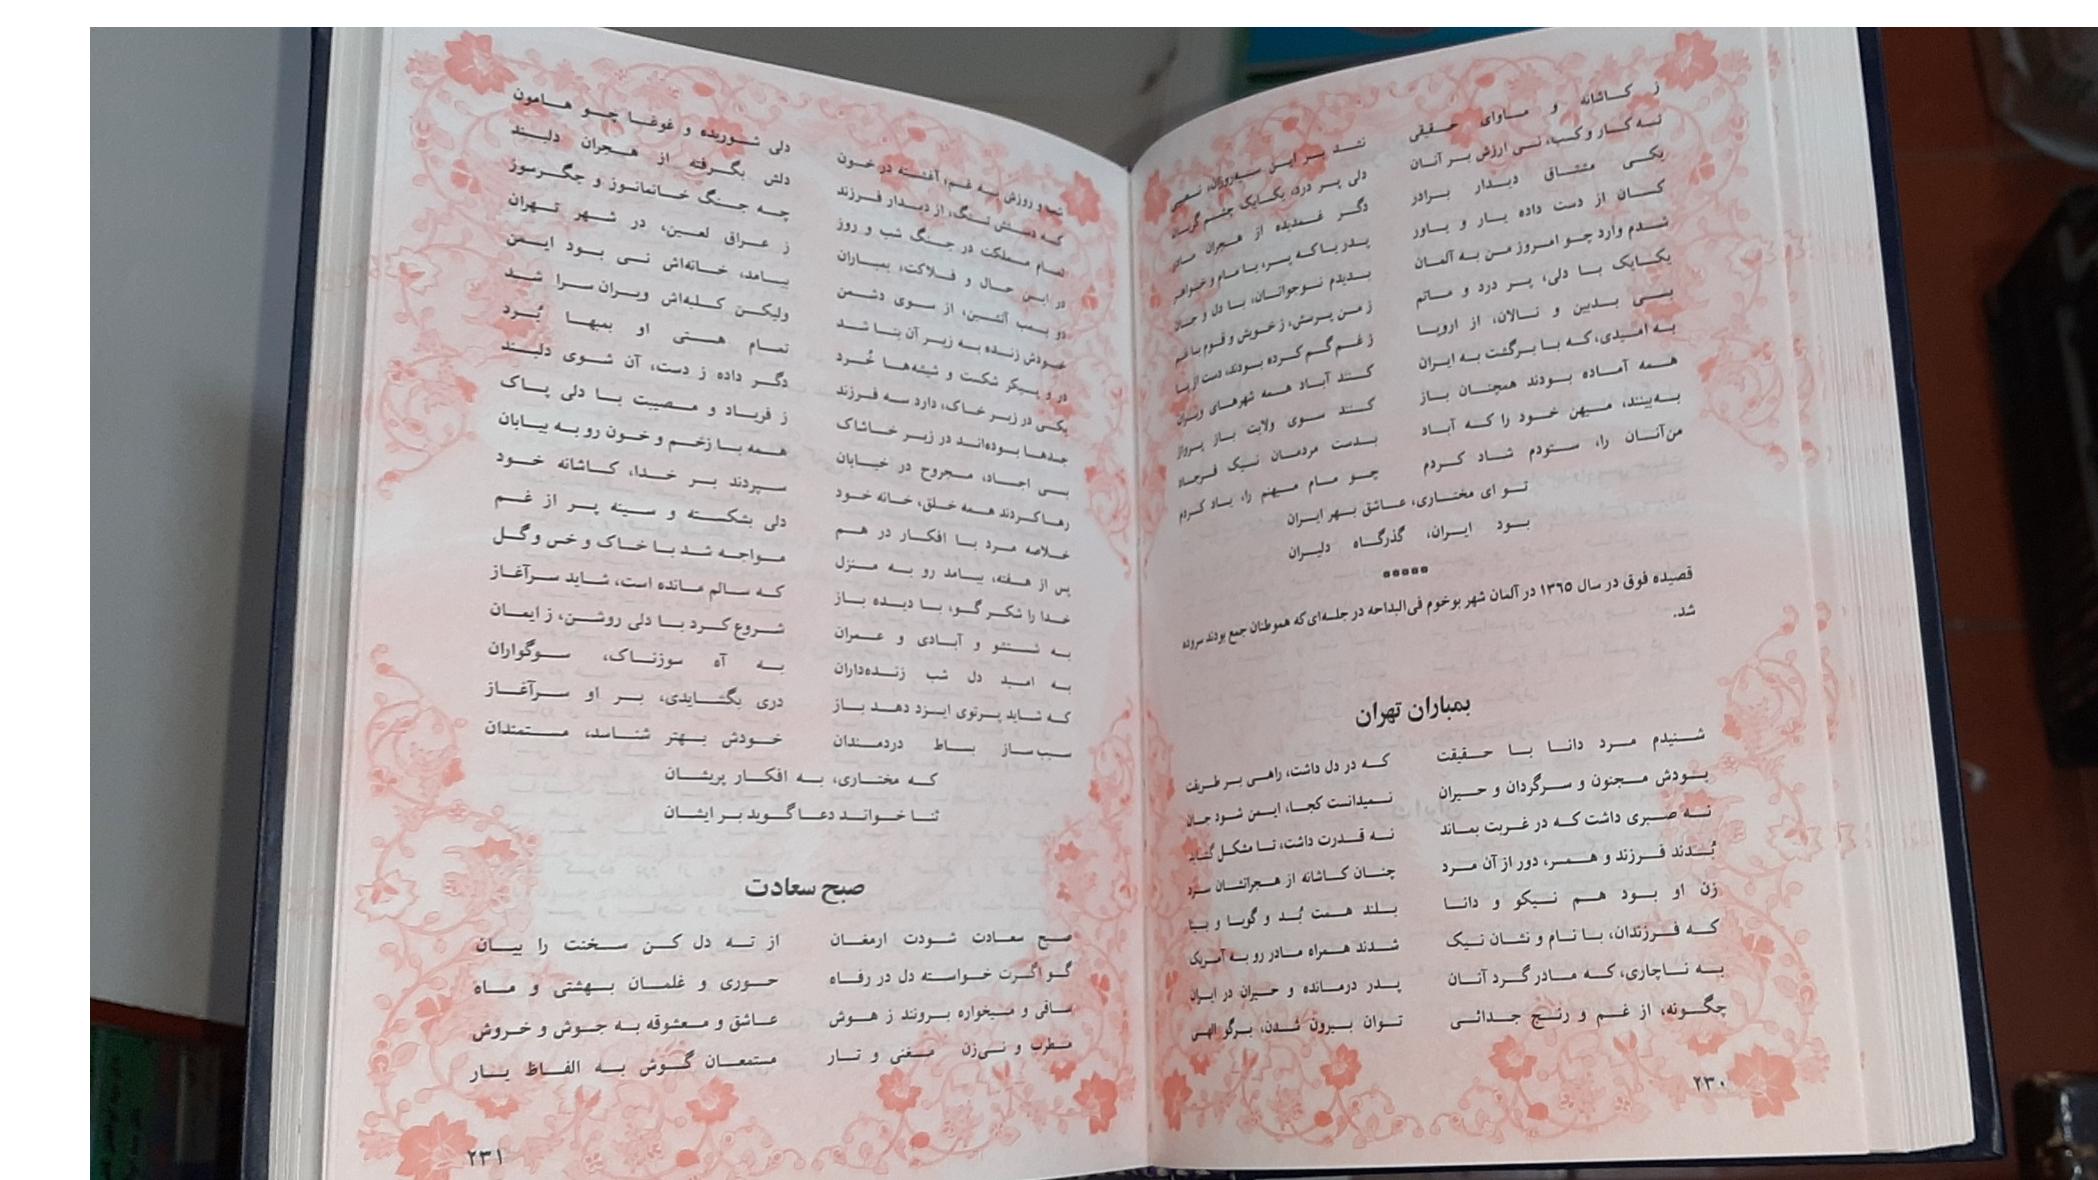 ز کاشانه و ماوای حقیقی نشد بر این سیه‌روزان، نصیبی
نه کار و کسب، نی ارزش بر آنان دلی پر درد، یکایک چشم گریان
یکی مشتاق دیدار برادر دگر غمدیده از هجران مادر
کان از دست داده یار و یاور پدر یا که پسر، یا مام و خواهر
شدم وارد چو امروز من به آلمان بدیدم نوجوانان، با دل و جان
یکایک با دلی، پر درد و ماتم ز من پرسش، ز خویش و قوم با غم
بسی بدبین و نالان، از اروپا ز غم گم کرده بودند، دست از پا
به امیدی، که با برگشت به ایران کنند آباد همه شهرهای ویران
همه آماده بودند همچنان باز کنند سوی ولایت باز پرواز
به‌بینند، میهن خود را که آباد بدست مردمان نیک فرجاد
من‌آنان را، ستودم شاد کردم چو مام میهنم را، یاد کردم
تو ای مختاری، عاشق بهر ایران
بود ایران، گذرگاه دلیران
*****
قصیده فوق در سال ۱۳۶۵ در آلمان شهر بوخوم فی‌البداحه در جلسه‌ای که هموطنان جمع بودند سروده
شد.
بمباران تهران
شنیدم مرد دانا با حقیقت که در دل داشت، راهی بر طریقت
بودش مجنون و سرگردان و حیران نمیدانست کجا، ایمن شود جان
نه صبری داشت که در غربت بماند نه قدرت داشت، تا مشکل گشاید
بُدند فرزند و همسر، دور از آن مرد چنان کاشانه از هجرانشان سرد
زن او بود هم نیکو و دانا بلند همت بُد و گویا و بینا
که فرزندان، با نام و نشان نیک شدند همراه مادر رو به آمریک
به ناچاری، که مادر گرد آنان پدر درمانده و حیران در ایران
چگونه، از غم و رنج جدائی توان بیرون شدن، برگو الهی
۲۳۰
شب و روزش به غم، آغشته در خون دلی شوریده و غوغا چو هامون
که دستش تنگ، از دیدار فرزند دلش بگرفته از هجران دلبند
تمام مملکت در جنگ شب و روز چه جنگ خانمانوز و جگرسوز
در این حال و فلاکت، بمباران ز عراق لعین، در شهر تهران
دو بمب آتشین، از سوی دشمن بیامد، خانه‌اش نی بود ایمن
خودش زنده به زیر آن بنا شد ولیکن کلبه‌اش ویران سرا شد
در و پیکر شکست و شیشه‌ها خُرد تمام هستی او بمبها بُرد
یکی در زیر خاک، دارد سه فرزند دگر داده ز دست، آن شوی دلبند
جسدها بوده‌اند در زیر خاشاک ز فریاد و مصیبت با دلی پاک
بسی اجساد، مجروح در خیابان همه با زخم و خون رو به بیابان
رها کردند همه خلق، خانه خود سپردند بر خدا، کاشانه خود
خلاصه مرد با افکار در هم دلی بشکسته و سینه پر از غم
پس از هفته، بیامد رو به منزل مواجه شد با خاک و خس و گل
خدا را شکر گو، با دیده باز که سالم مانده است، شاید سرآغاز
به شستشو و آبادی و عمران شروع کرد با دلی روشن، ز ایمان
به امید دل شب زنده‌داران به آه سوزناک، سوگواران
که شاید پرتوی ایزد دهد باز دری بگشایدی، بر او سرآغاز
سبب ساز بساط دردمندان خودش بهتر شناسد، مستمندان
که مختاری، به افکار پریشان
ثنا خواند دعا گوید بر ایشان
صبح سعادت
صبح سعادت شودت ارمغان از ته دل کن سخنت را بیان
گو اگرت خواسته دل در رفاه حوری و غلمان بهشتی و ماه
ساقی و میخواره بروند ز هوش عاشق و معشوقه به جوش و خروش
مطرب و نی‌زن مغنی و تار مستمعان گوش به الفاظ یار
۲۳۱